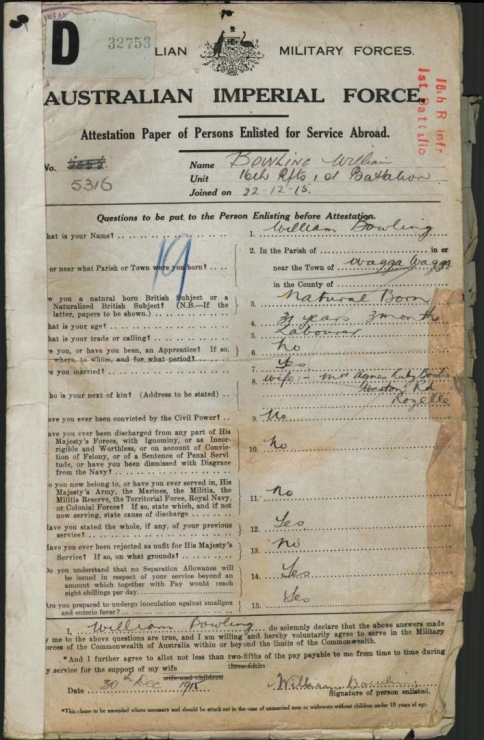 D
32753
LIAN MILITARY FORCES.
AUSTRALIAN IMPERIAL FORCE.
16th R infr
1st Battalio
Attestation Paper of Persons Enlisted for Service Abroad.
No. 5316
Name Bowling William
Unit 16th Rfts 1st Battalion
Joined on 22-12-15.
Questions to be put to the Person Enlisting before Attestation.
hat is your Name? 1. William Bowling
2. In the Parish of in or
or near what Parish or Town were you born? near the Town of Wagga Wagga
in the County of
19
ve you a natural born British Subject or a
Naturalized British Subject? (N.B.—If the
latter, papers to be shown.) 3. Natural Born
hat is your age? 4. 31 years 3 month
hat is your trade or calling? 5. Labourer
re you, or have you been, an Apprentice? If so,
where, to whom, and for what period? 6. No
re you married? 7. Yes
ho is your next of kin? (Address to be stated) 8. Wife - Mrs Agnes Ruby Bowlin
Weston Rd
Rozelle
ave you ever been convicted by the Civil Power? 9. No
ave you ever been discharged from any part of His
Majesty's Forces, with Ignominy, or as Incor-
rigible and Worthless, or on account of Convic-
tion of Felony, or of a Sentence of Penal Servi-
tude, or have you been dismissed with Disgrace
from the Navy? 10. No
o you now belong to, or have you ever served in, His
Majesty's Army, the Marines, the Militia, the
Militia Reserve, the Territorial Force, Royal Navy,
or Colonial Forces? If so, state which, and if not
now serving, state cause of discharge 11. No
ave you stated the whole, if any, of your previous
service? 12. Yes
ave you ever been rejected as unfit for His Majesty's
Service? If so, on what grounds? 13. No
o you understand that no Separation Allowance will
be issued in respect of your service beyond an
amount which together with Pay would reach
eight shillings per day 14. Yes
re you prepared to undergo inoculation against smallpox
and enteric fever? 15. Yes
William Bowling do solemnly declare that the above answers made
y me to the above questions are true, and I am willing and hereby voluntarily agree to serve in the Military
orces of the Commonwealth of Australia within or beyond the limits of the Commonwealth.
*And I further agree to allot not less than two-fifths of the pay payable to me from time to time during
three-fifths
y service for the support of my wife
wife and children
Date 30th Dec 191 William Bowling
Signature of person enlisted.
*This clause to be amended where necessary and should be struck out in the case of unmarried men or widowers without children under 18 years of age.